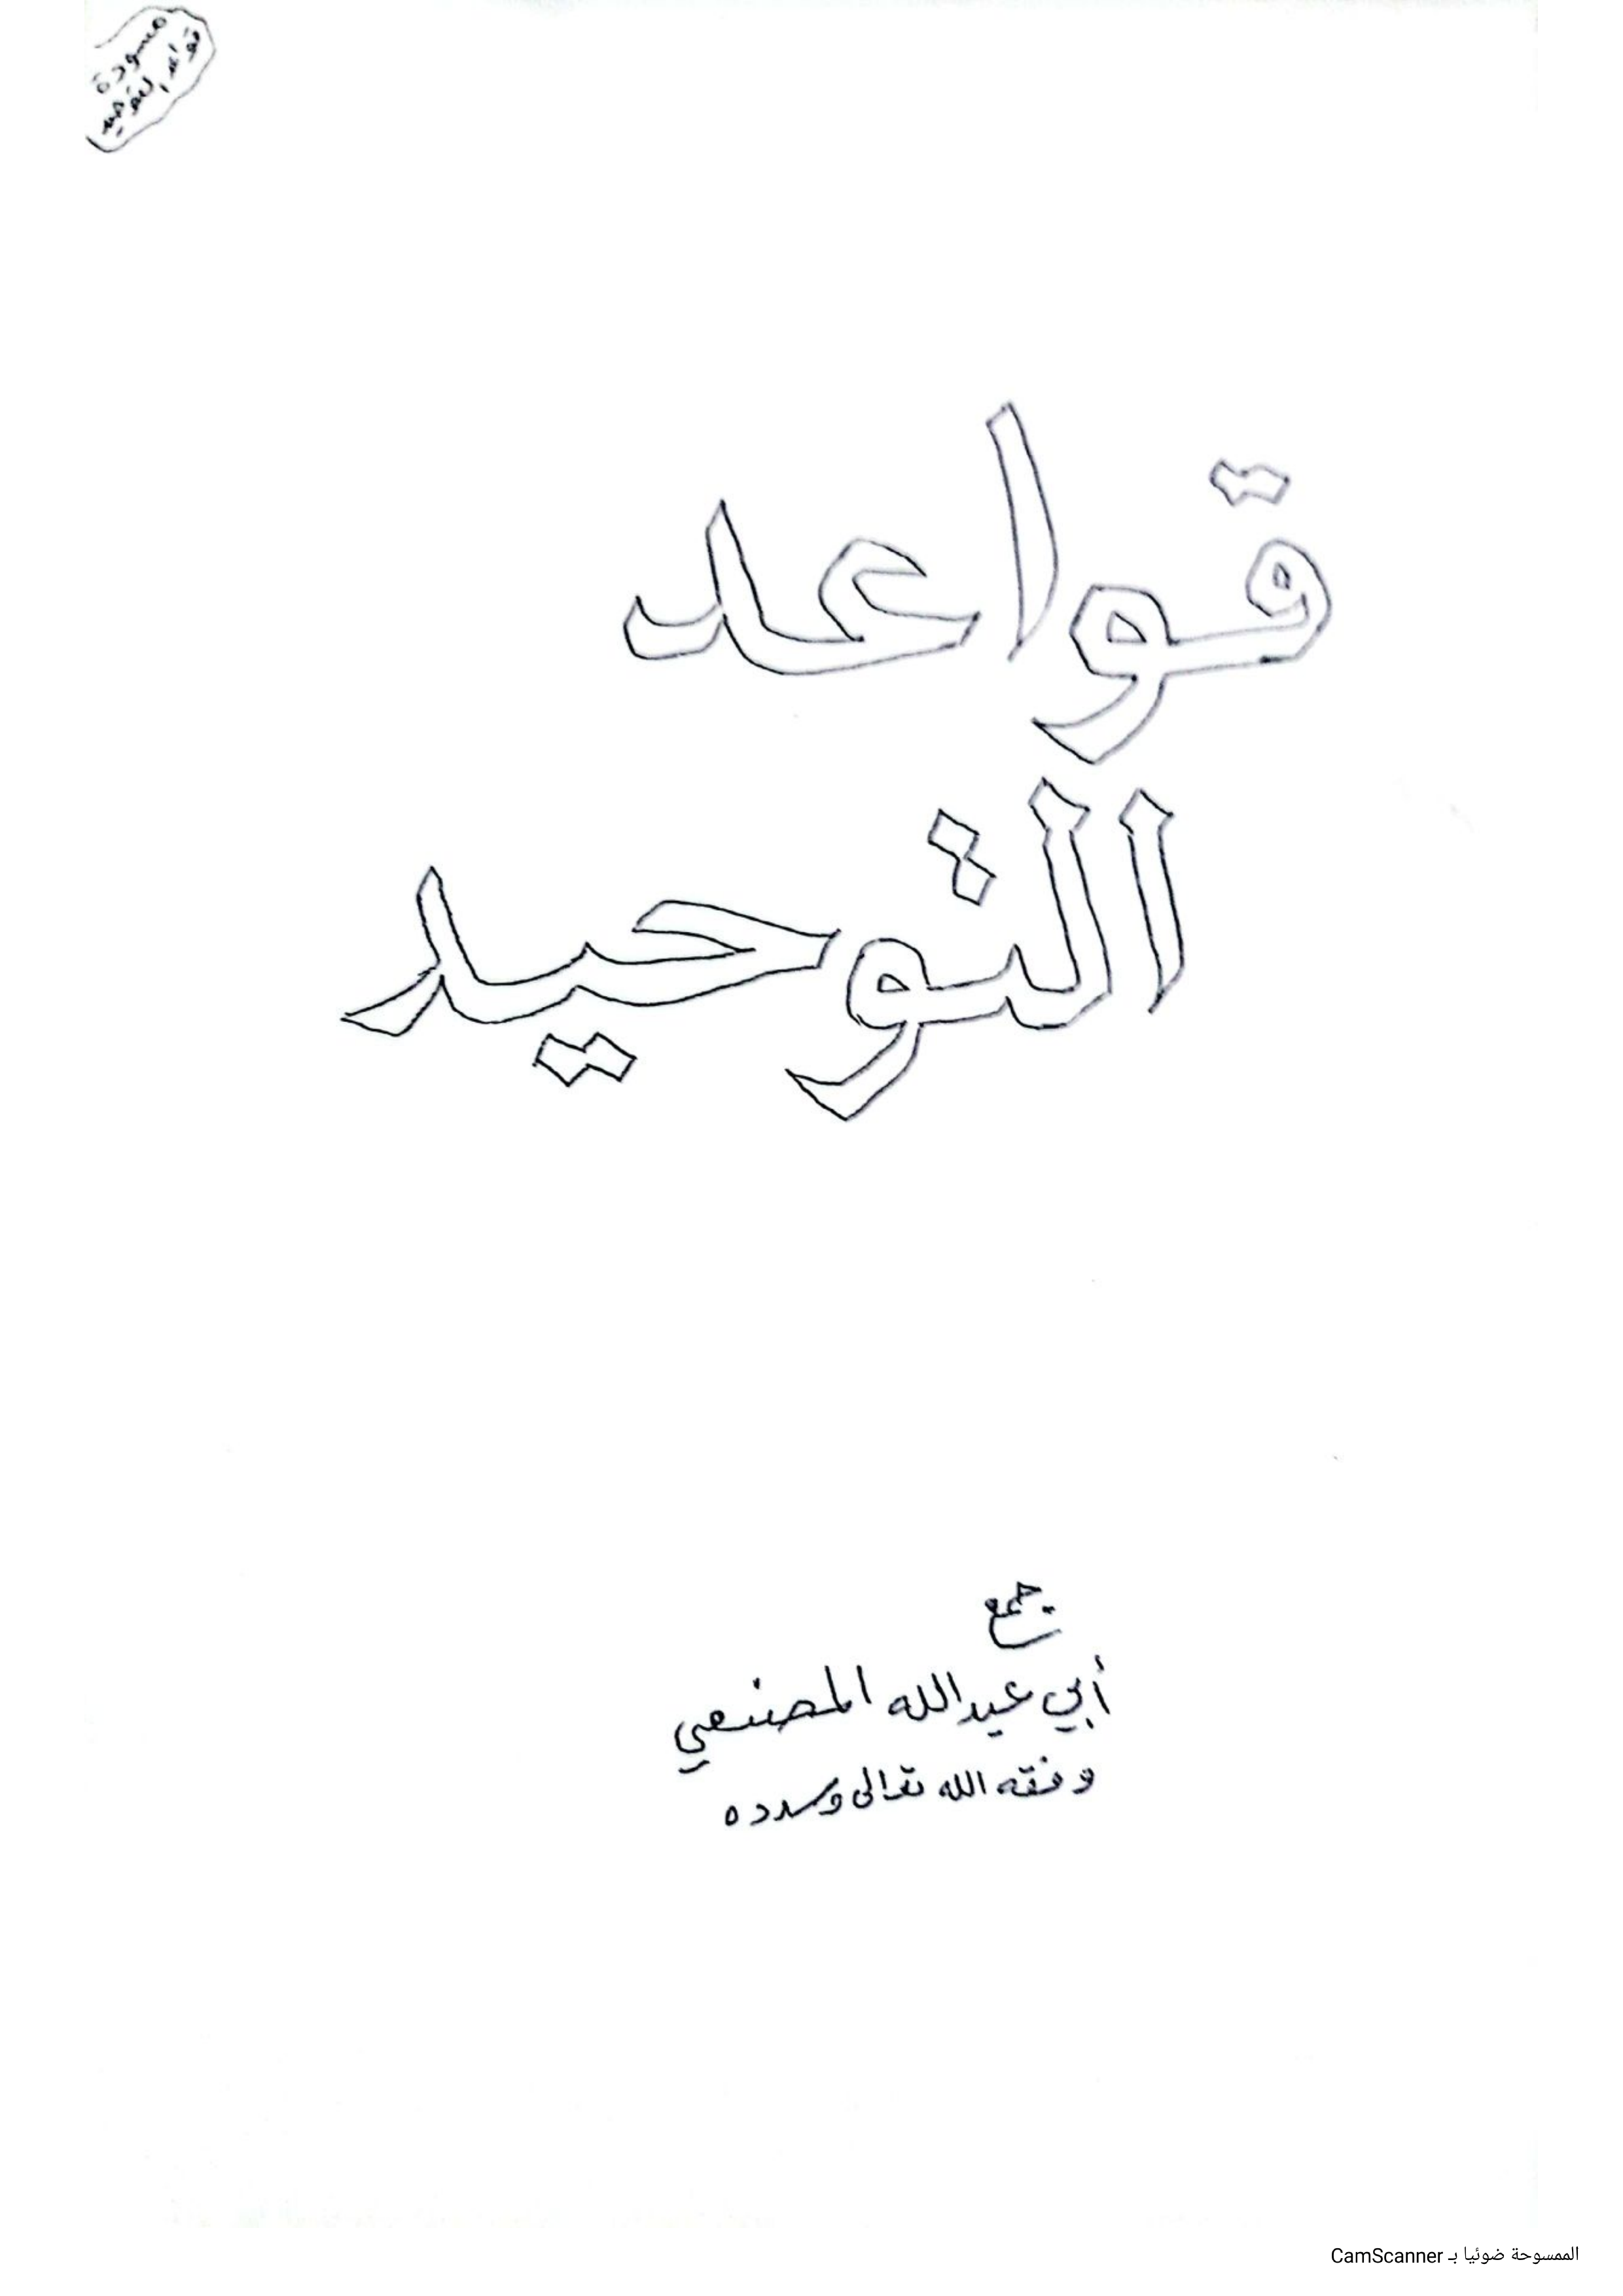 مسودة
قواعد التوحيد
قواعد
التوحيد
جمع
أبي عبدالله المصنعي
وفقه الله تعالى وسدده
الممسوحة ضوئيا بـ CamScanner